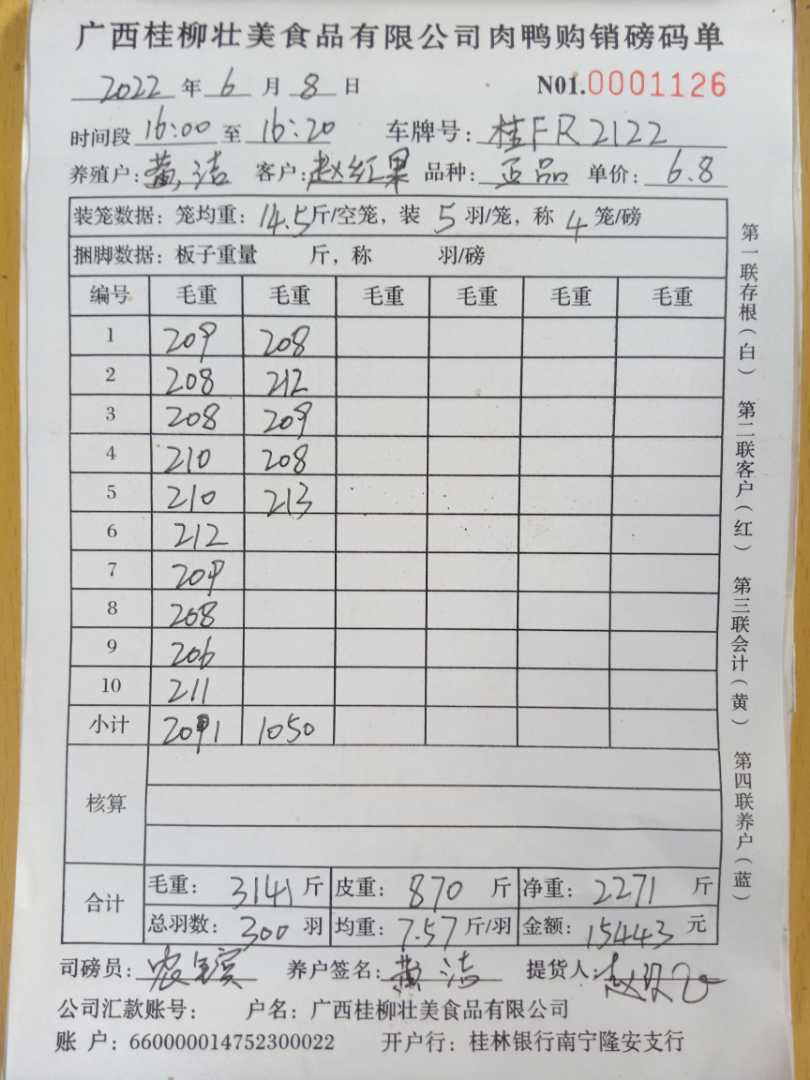 广西桂柳壮美食品有限公司肉鸭购销磅码单
2022 年 6 月 8 日 N01.0001126
时间段 16:00 至 16:20 车牌号: 桂FR2122
养殖户: 黄洁 客户: 赵红果 品种: 正品 单价: 6.8
装笼数据: 笼均重: 14.5斤/空笼, 装 5 羽/笼, 称 4 笼/磅
捆脚数据: 板子重量 斤, 称 羽/磅
编号 毛重 毛重 毛重 毛重 毛重 毛重
1 209 208
2 208 212
3 208 209
4 210 208
5 210 213
6 212
7 209
8 208
9 206
10 211
小计 2091 1050
核算
合计 毛重: 3141 斤 皮重: 870 斤 净重: 2271 斤
总羽数: 300 羽 均重: 7.57 斤/羽 金额: 15443 元
司磅员: 养户签名: 黄洁 提货人:
公司汇款账号: 户名: 广西桂柳壮美食品有限公司
账 户: 660000014752300022 开户行: 桂林银行南宁隆安支行
第一联存根(白) 第二联客户(红) 第三联会计(黄) 第四联养户(蓝)